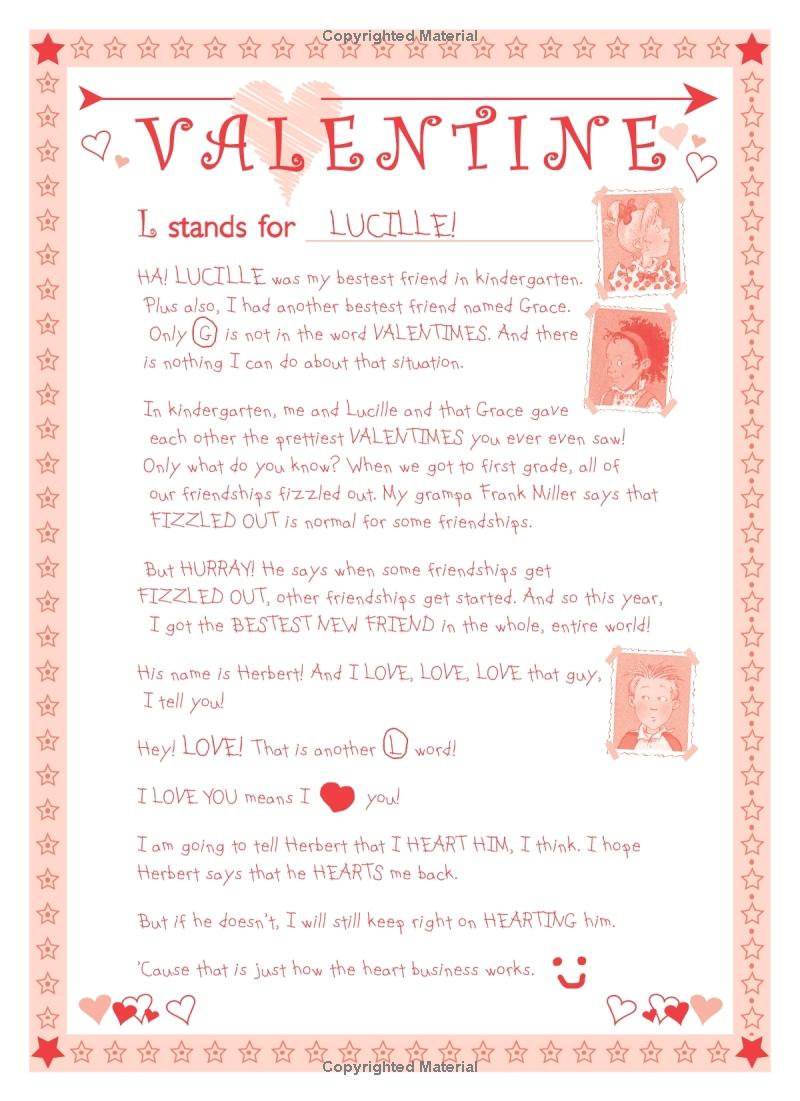 Copyrighted Material
VALENTINE
L stands for LUCILLE!
HA! LUCILLE was my bestest friend in kindergarten.
Plus also, I had another bestest friend named Grace.
Only G is not in the word VALENTIMES. And there
is nothing I can do about that situation.
In kindergarten, me and Lucille and that Grace gave
each other the prettiest VALENTIMES you ever even saw!
Only what do you know? When we got to first grade, all of
our friendships fizzled out. My grampa Frank Miller says that
FIZZLED OUT is normal for some friendships.
But HURRAY! He says when some friendships get
FIZZLED OUT, other friendships get started. And so this year,
I got the BESTEST NEW FRIEND in the whole, entire world!
His name is Herbert! And I LOVE, LOVE, LOVE that guy,
I tell you!
Hey! LOVE! That is another L word!
I LOVE YOU means I ♥ you!
I am going to tell Herbert that I HEART HIM, I think. I hope
Herbert says that he HEARTS me back.
But if he doesn't, I will still keep right on HEARTING him.
'Cause that is just how the heart business works.
Copyrighted Material